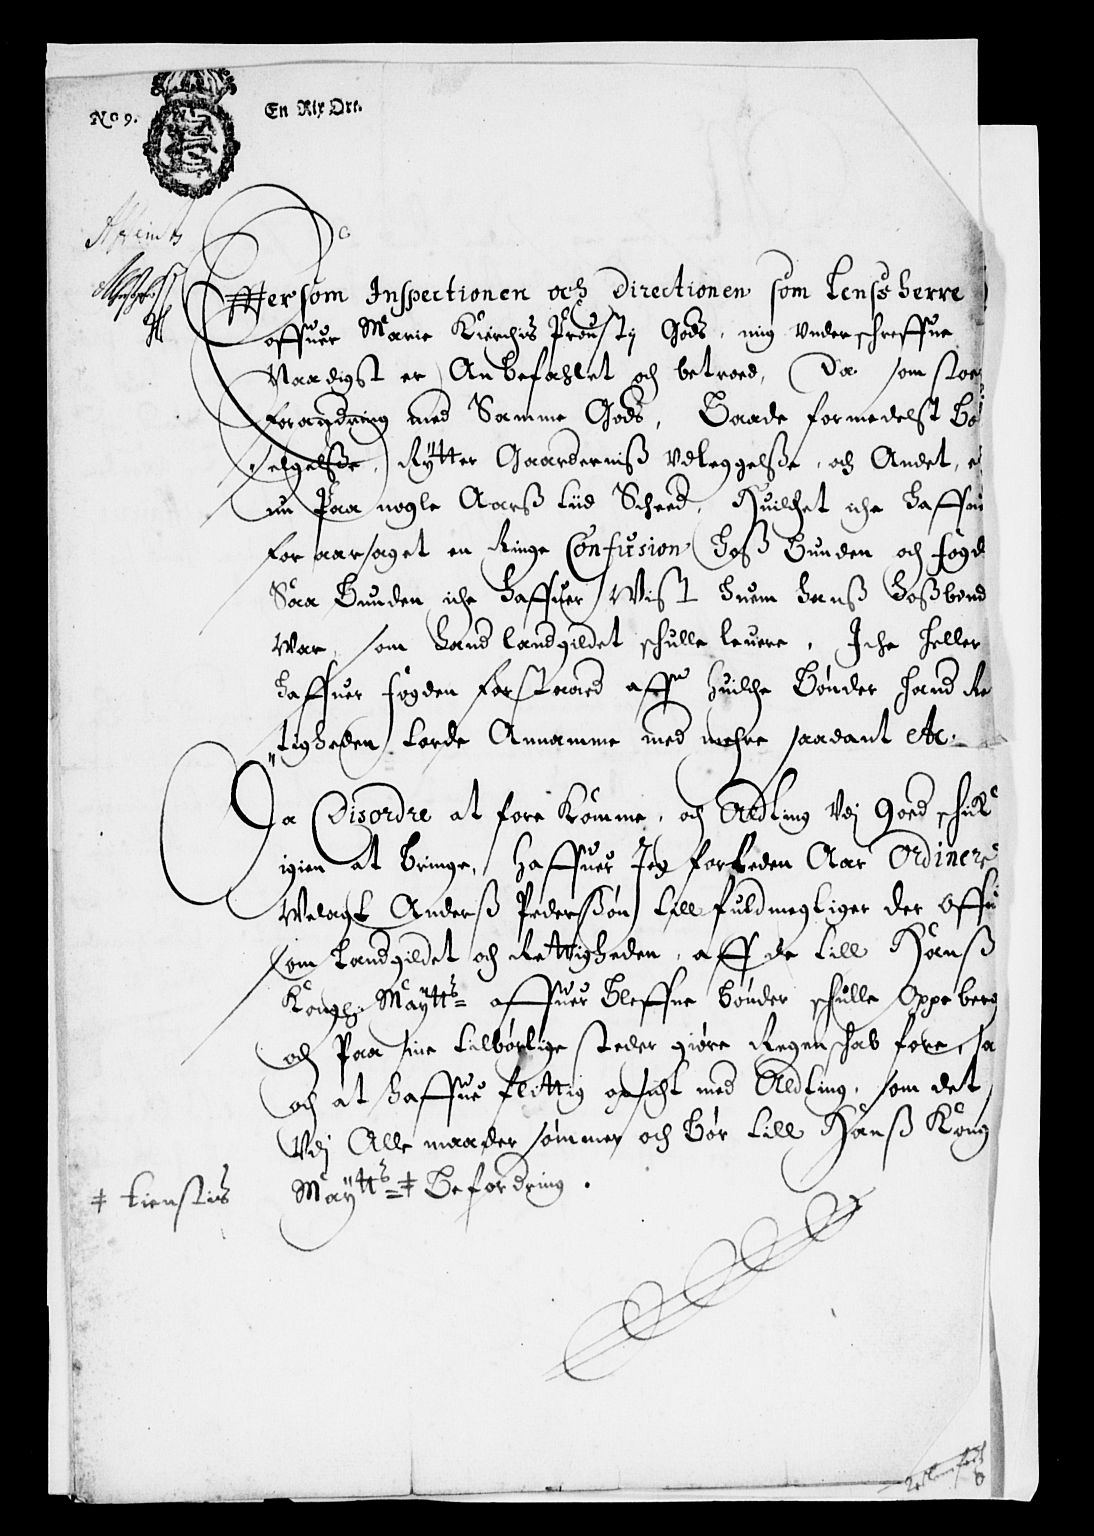 No 9.
En Rix Ort.
Effttersom Inspectionen och Directionen som Lenss herre
offuer Marie Kierchis Prousti Gods, mig vnderschreffue
Naadigst er Anbefahlet och betroed, Da som stoer
forandring med Samme Gods, Baade formedelst Bö
selgelsße, Rÿtter Gaarderniß Vdleggelsße, och Andet, e
nu Paa nogle Aarß tiid Scheed, Huilchet iche haffuer
foraarsaget en Ringe Confusion hoß Bunden och fogd
Saa Bunden iche haffuer Wist huem hanß hoßbond
War, som hand landgildet schulle leuere, Iche heller
haffuer fogden forstaaed aff huilche Bønder hand Re
tigheden torde Annamme med mehre saadant etc.
Da Disordre at fore Komme, och Alting Vdj Goed schick
igien at bringe, haffuer Jeg forleden Aar Ordineret
Welagt Anderß Pederßøn till fuldmegtiger der offu
som Landgildet och Rettigheden, aff de till Hanß
Kongl: Maÿtts offuer Bleffne Bønder schulle Oppeberg
och Paa sine tilbørlige steder giøre Regenschab fore, sa
och at haffue flittig opsicht med Alting, som det
Vdj Alle maader sømmer och Bør till Hanß Kong
Maÿtts ‡ Befordring.
‡ tienstis